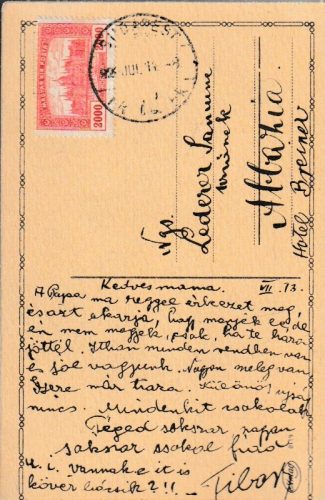 BUDAPEST
MAGYAR KIR. POSTA
2000
Ngs.
Lederer Samuné
úrnőnek
Abbázia
Hotel Breiner
Kedves mama. VII. 13.
A Papa ma reggel érkezet meg,
és azt akarja, hogy menjek el de
én nem megyek, csak, ha te haza
jöttél. Itthan minden rendben van
és jól vagyunk. Nagyon meleg van
már tiara. Különös ujság
nincs. Mindenkit csokolok
Téged sokszor papan
sokszor csokol fiad
u. i. vannak e it is
kövér bácsik?!! Tibor